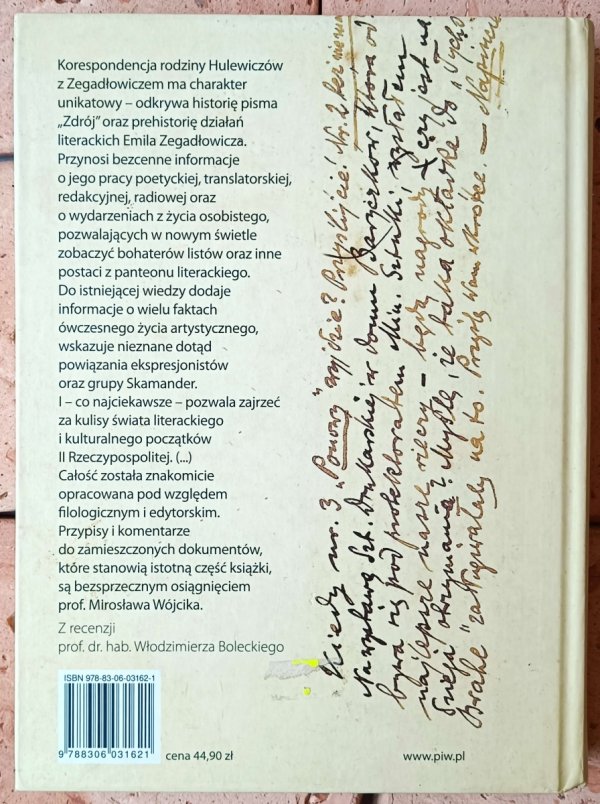 Korespondencja rodziny Hulewiczów
z Zegadłowiczem ma charakter
unikatowy – odkrywa historię pisma
„Zdrój” oraz prehistorię działań
literackich Emila Zegadłowicza.
Przynosi bezcenne informacje
o jego pracy poetyckiej, translatorskiej,
redakcyjnej, radiowej oraz
o wydarzeniach z życia osobistego,
pozwalających w nowym świetle
zobaczyć bohaterów listów oraz inne
postaci z panteonu literackiego.
Do istniejącej wiedzy dodaje
informacje o wielu faktach
ówczesnego życia artystycznego,
wskazuje nieznane dotąd
powiązania ekspresjonistów
oraz grupy Skamander.
I – co najciekawsze – pozwala zajrzeć
za kulisy świata literackiego
i kulturalnego początków
II Rzeczypospolitej. (...)
Całość została znakomicie
opracowana pod względem
filologicznym i edytorskim.
Przypisy i komentarze
do zamieszczonych dokumentów,
które stanowią istotną część książki,
są bezsprzecznym osiągnięciem
prof. Mirosława Wójcika.
Z recenzji
prof. dr. hab. Włodzimierza Boleckiego
ISBN 978-83-06-03162-1
9 788306 031621
cena 44,90 zł
www.piw.pl
Kiedy nr. 3 „Ponowy” wyjdzie? Przyślijcie! Nr. 2 bez
Na wystawę Szt. Drukarskiej w domu Baryczków, która od
bywa się pod protektoratem Min. Sztuki, wysłałem
najlepsze nasze rzeczy – będą nagrody. Czy jest na
dzieja otrzymania? Myślę, że taka okładka do „Tycho
Brahe” zasługiwałaby na to. Przyślę Wam wkrótce. –